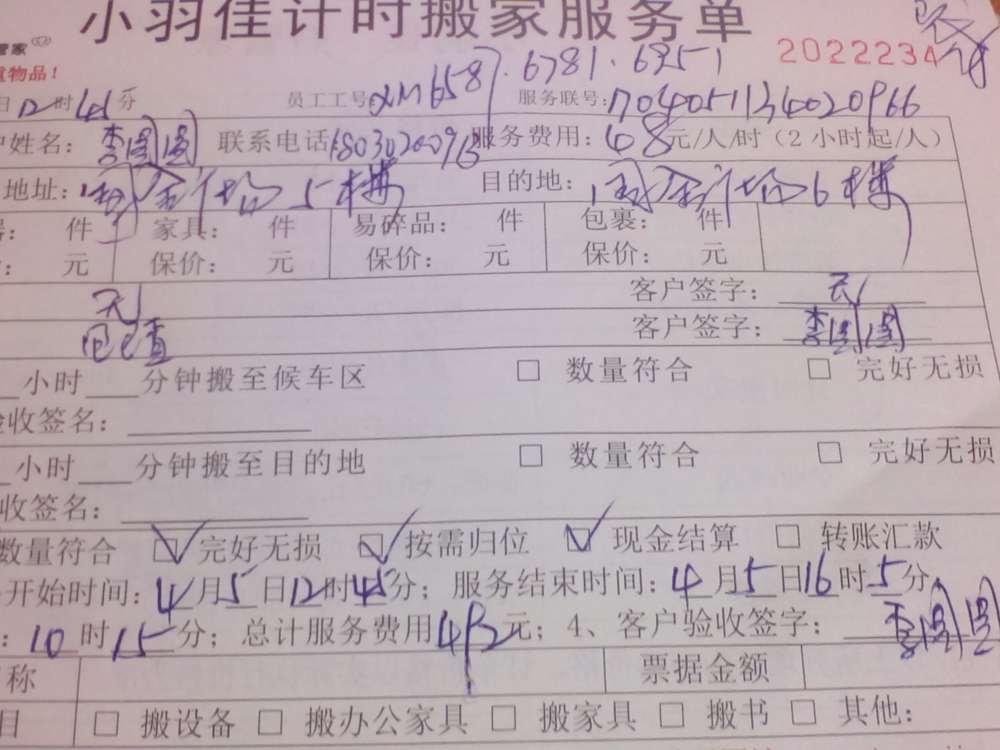 小羽佳计时搬家服务单
管家
2022234
物品!
日12时45分 员工工号: 服务联号:1704051134020966
姓名: 李圆圆 联系电话 服务费用: 68元/人/时(2小时起/人)
地址: 5楼 目的地: 6楼
件 家具: 件 易碎品: 件 包裹: 件
元 保价: 元 保价: 元 保价: 元
无 客户签字: 无
已检查 客户签字: 李圆圆
小时 分钟搬至候车区 □ 数量符合 □ 完好无损
收签名:
小时 分钟搬至目的地 □ 数量符合 □ 完好无损
收签名:
数量符合 ☑ 完好无损 ☑ 按需归位 ☑ 现金结算 □ 转账汇款
开始时间: 4月5日12时45分; 服务结束时间: 4月5日16时5分
: 10时15分; 总计服务费用 元; 4、客户验收签字: 李圆圆
称 票据金额
目 □ 搬设备 □ 搬办公家具 □ 搬家具 □ 搬书 □ 其他: